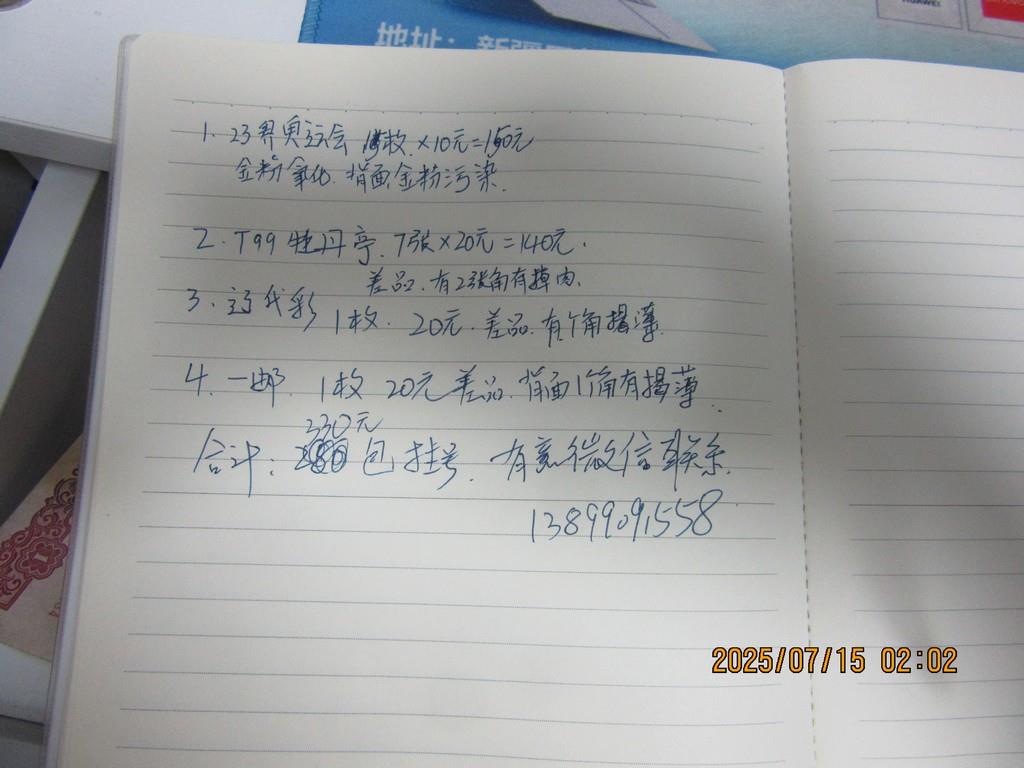 地址：新疆
HUAWEI
1. 23界奥运会 15枚.×10元=150元
金粉氧化. 背面金粉污染.
2. T99 牡丹亭. 7张×20元=140元.
差品. 有2张角有掉肉.
3. 辽代彩 1枚. 20元. 差品. 有1角揭薄.
4. 一邮. 1枚 20元 差品. 背面1个角有揭薄.
330元
合计： 包挂号. 有意微信联系.
13899091558
2025/07/15 02:02